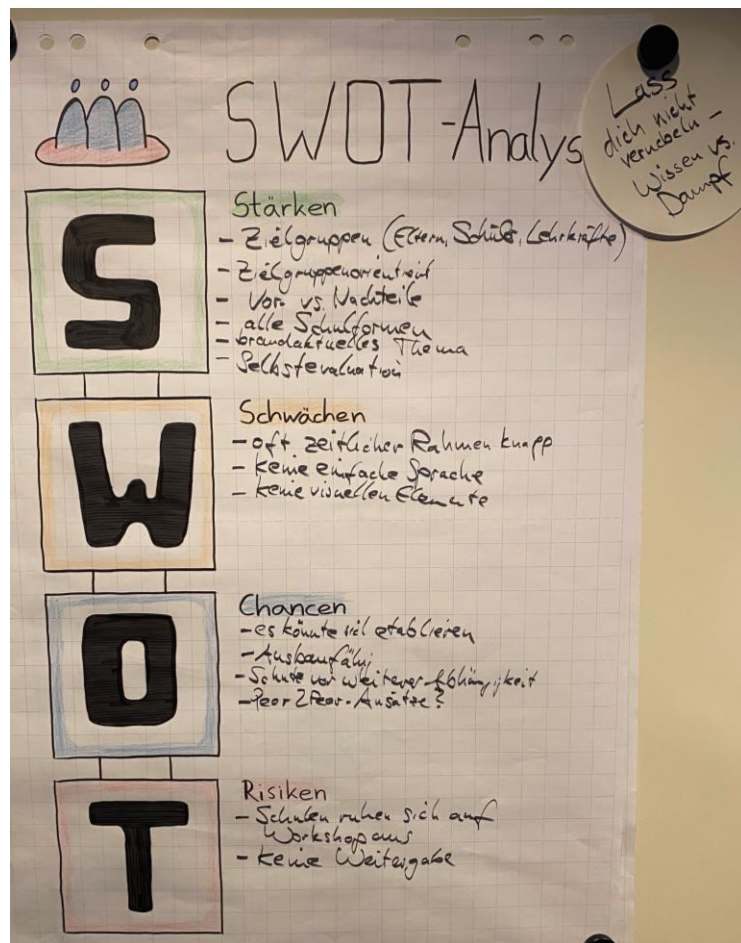 SWOT-Analys
Lass
dich nicht
vernebeln -
Wissen vs.
Dampf
S
Stärken
- Zielgruppen (Eltern, Schüler, Lehrkräfte)
- Zielgruppenorientiert
- Vor- vs. Nachteile
- alle Schulformen
- brandaktuelles Thema
- Selbstevaluation
W
Schwächen
- oft zeitlicher Rahmen knapp
- keine einfache Sprache
- keine visuellen Elemente
O
Chancen
- es könnte sich etablieren
- Ausbaufähig
- Schutz vor weiterer Abhängigkeit
- Peer2Peer-Ansätze?
T
Risiken
- Schulen ruhen sich auf
Workshop aus
- keine Weitergabe